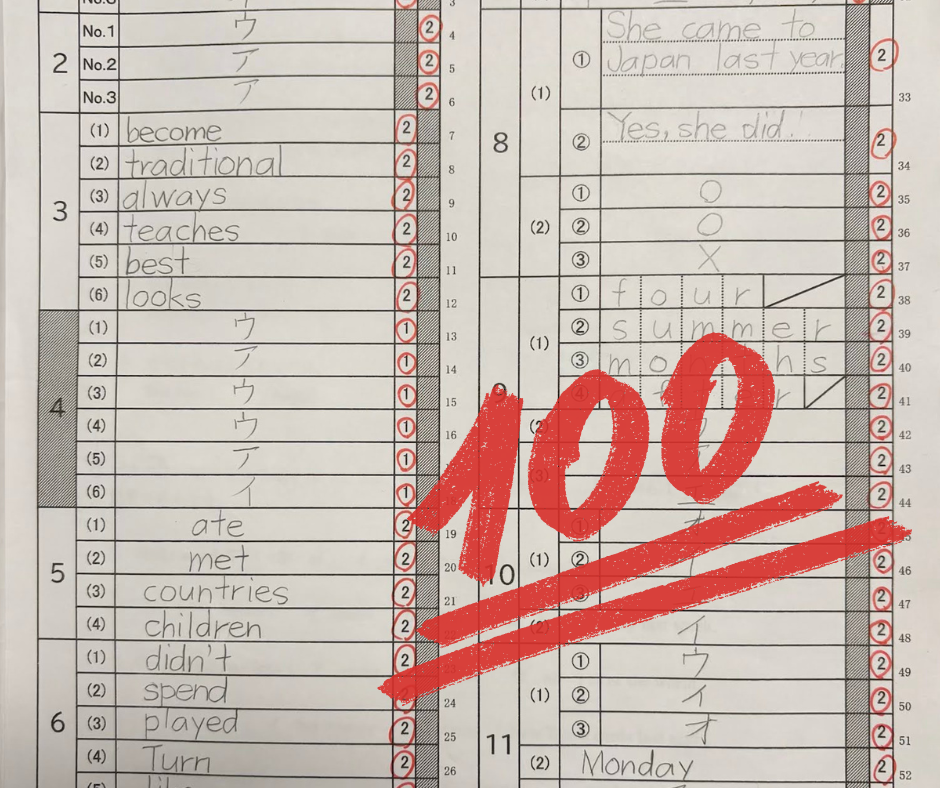 3
2
No.1 ウ 2 4
No.2 ア 2 5
No.3 ア 2 6
3
(1) become 2 7
(2) traditional 2 8
(3) always 2 9
(4) teaches 2 10
(5) best 2 11
(6) looks 2 12
4
(1) ウ 1 13
(2) ア 1 14
(3) ウ 1 15
(4) ウ 1 16
(5) ア 1
(6) イ 1
5
(1) ate 2 19
(2) met 2 20
(3) countries 2 21
(4) children 2
6
(1) didn't 2
(2) spend 2 24
(3) played 2 25
(4) Turn 2 26
8
(1)
① She came to
Japan last year. 2 33
② Yes, she did. 2 34
(2)
① ○ 2 35
② ○ 2 36
③ × 2 37
9
(1)
① four 2 38
② summer 2 39
③ mo hs 2 40
④ r 2 41
(2) 2 42
(3) 2 43
2 44
100
10
(1)
①
② 2 46
③ 2 47
(2) イ 2 48
11
(1)
① ウ 2 49
② イ 2 50
③ オ 2 51
(2) Monday 2 52